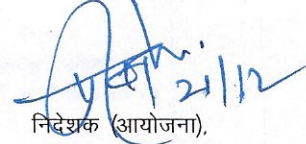 21/12
निदेशक (आयोजना),